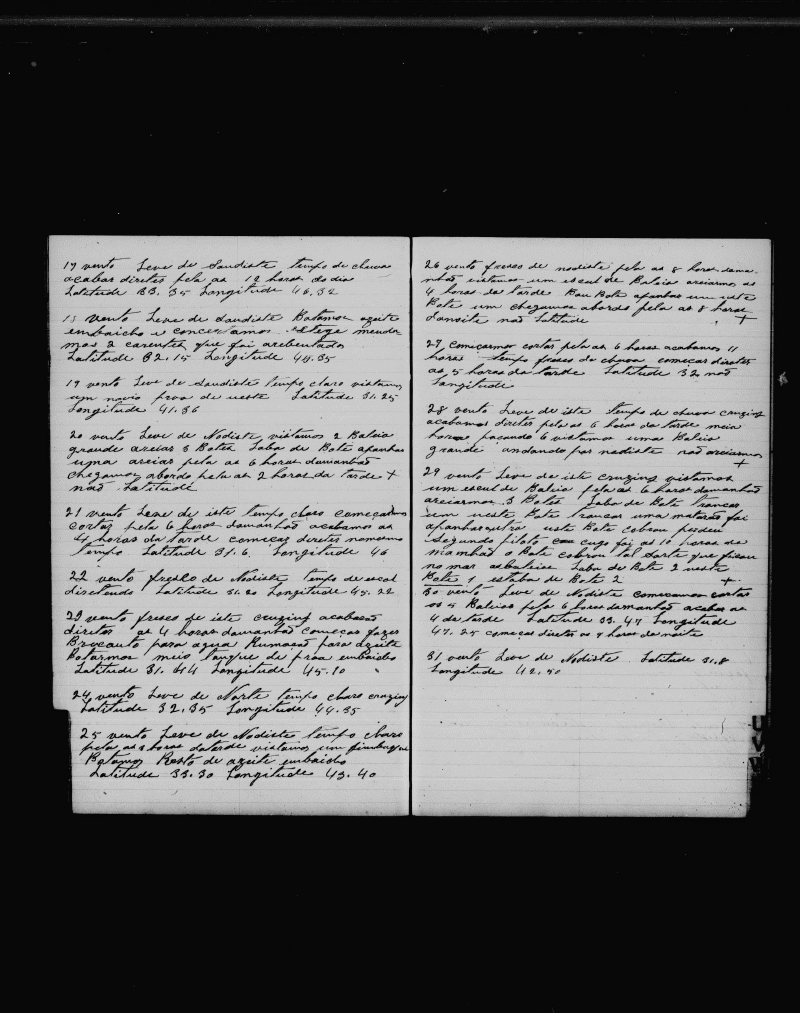 17 vento Leve de Saudiste tempo de chuva
acabar diretes pela as 12 horas do dia
Latitude 33.35 Longitude 46.32
13 vento Leve de Saudiste Batamos azeite
embaicho e concertamos
mos 2 carentes que foi arebentados
Latitude 32.15 Longitude 44.35
19 vento Leve de Saudiste tempo claro vistamos
um navio prva de ueste Latitude 31.25
Longitude 41.36
20 vento Leve de Nodiste vistamos 2 Baleia
grande areias 3 Botes Laba de Bote apanhar
uma areias pela as 6 horas damanhão
chegamos abordo pela as 2 horas da tarde +
não Latitude
21 vento Leve de iste tempo claro começamos
cortar pela 6 horas damanhão acabamos as
4 horas da tarde começar diretes
tempo Latitude 31.6. Longitude 46
22 vento fresco de Nodiste tempo de
diretendo Latitude 31.20 Longitude 45.22
23 vento fresco de iste cruzing acabasão
diretes as 4 horas damanhão começar fazer
para agua Rumasão para azeite
Batarmos meio tanque de prôa embaicho
Latitude 31.44 Longitude 45.10
24 vento Leve de Norte tempo claro cruzing
Latitude 32.35 Longitude 44.35
25 vento Leve de Nodiste tempo claro
pela as horas datarde vistamos um
Batamos Resto de azeite embaicho
Latitude 33.30 Longitude 43.40
26 vento fresco de nodiste pela as 8 horas dama-
nhão vistamos um escul de Baleia areiamos as
4 horas da tarde Bote apanhar um este
Bote um chegamos abordo pela as 8 horas
não Latitude +
27 começarmos cortar pela as 6 horas acabamos 11
horas tempo fresco de chuva começar diretes
as 5 horas da tarde Latitude 32 não
Longitude
28 vento Leve de iste tempo de chuva cruzing
acabamos diretes pela as 6 horas da tarde meia
hora 6 vistamos uma Baleia
grande andando por nodiste não areiamos
+
29 vento Leve de iste cruzing vistamos
um escul de Baleia pela as 6 horas damanhão
areiarmos 3 Botes Laba de Bote trancar
um neste Bote trancar uma foi
este Bote cobrou
segundo pilôto foi as 10 horas de
manhão o Bote cobrou tal sorte que ficou
no mar Laba de Bote 2 neste
Bote 1 estaba de Bote 2 +
30 vento Leve de Nodiste começamos cortar
os 5 Baleias pela 6 horas demanhão acabar as
4 da tarde Latitude 33.47 Longitude
47.25 começar diretes as 7 horas da noite
31 vento Leve de Nodiste Latitude 31.8
Longitude 42.50
U
V
W